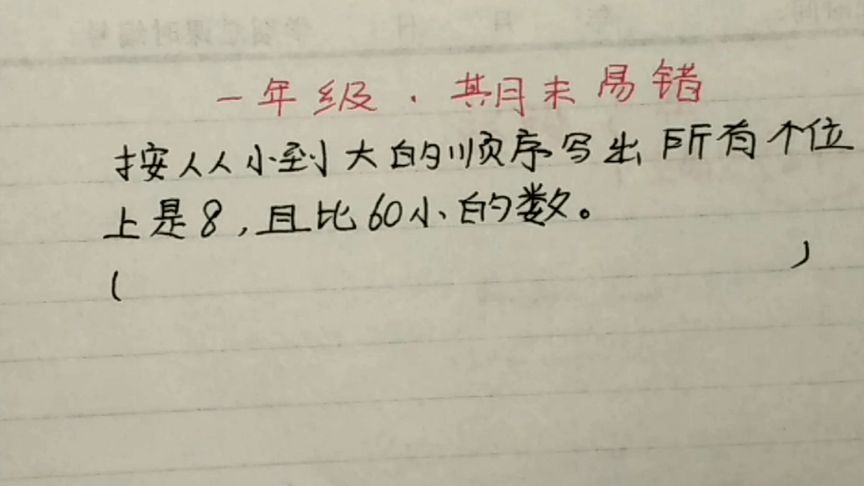 一年级·期末易错
按从小到大的顺序写出所有个位
上是8,且比60小的数。
(                    )